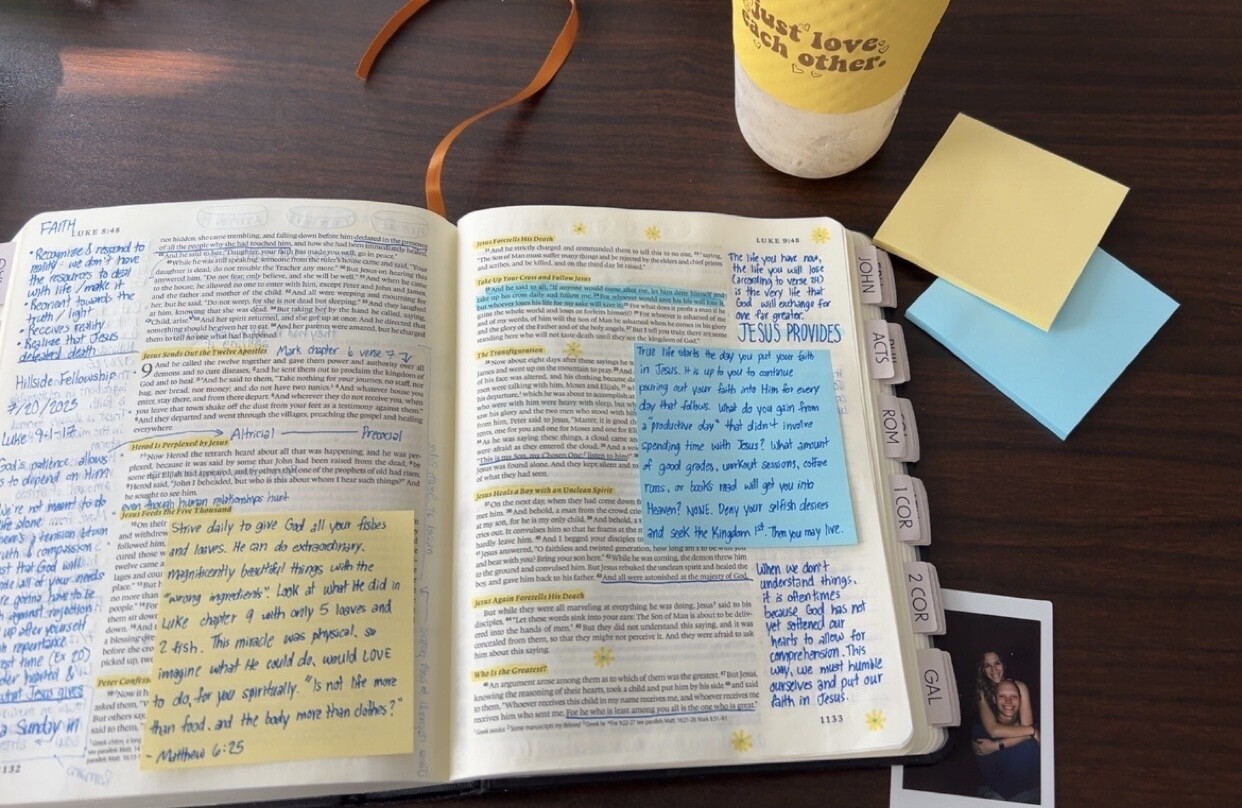 just love
each other.
FAITH
LUKE 8:48
• Recognize & respond to
reality - we don't have
the resources to deal
with life / make it
• Reorient towards the
truth / light
• Receives reality
• Realize that Jesus
defeated death
Hillside Fellowship
7/20/2025
Luke 9:1-17
God's patience allows
us to depend on Him
We're not meant to do
life alone
nor hidden, she came trembling, and falling down before him declared in the presence
of all the people why she had touched him, and how she had been immediately healed.
And he said to her, "Daughter, your faith has made you well; go in peace."
While he was still speaking, someone from the ruler's house came and said, "Your
daughter is dead; do not trouble the Teacher any more." But Jesus on hearing this
answered him, "Do not fear; only believe, and she will be well." And when he came
to the house, he allowed no one to enter with him, except Peter and John and James,
and the father and mother of the child. And all were weeping and mourning for
her, but he said, "Do not weep, for she is not dead but sleeping." And they laughed
at him, knowing that she was dead. But taking her by the hand he called, saying,
"Child, arise." And her spirit returned, and she got up at once. And he directed that
something should be given her to eat. And her parents were amazed, but he charged
them to tell no one what had happened.
Jesus Sends Out the Twelve Apostles
Mark chapter 6 verse 7
9 And he called the twelve together and gave them power and authority over all
demons and to cure diseases, and he sent them out to proclaim the kingdom of
God and to heal. And he said to them, "Take nothing for your journey, no staff, nor
bag, nor bread, nor money; and do not have two tunics. And whatever house you
enter, stay there, and from there depart. And wherever they do not receive you, when
you leave that town shake off the dust from your feet as a testimony against them."
And they departed and went through the villages, preaching the gospel and healing
everywhere.
Altricial Precocial
Herod Is Perplexed by Jesus
Now Herod the tetrarch heard about all that was happening, and he was per-
plexed, because it was said by some that John had been raised from the dead, by
some that Elijah had appeared, and by others that one of the prophets of old had risen.
Herod said, "John I beheaded, but who is this about whom I hear such things?" And
he sought to see him.
even though human relationships hurt
Jesus Feeds the Five Thousand
Strive daily to give God all your fishes
and loaves. He can do extraordinary,
magnificently beautiful things with the
"wrong ingredients". Look at what He did in
Luke chapter 9 with only 5 loaves and
2 fish. This miracle was physical, so
imagine what He could do, would LOVE
to do, for you spiritually. "Is not life more
than food, and the body more than clothes?"
- Matthew 6:25
what Jesus gives
Sunday in
LUKE 9:48
Jesus Foretells His Death
And he strictly charged and commanded them to tell this to no one, saying,
"The Son of Man must suffer many things and be rejected by the elders and chief priests
and scribes, and be killed, and on the third day be raised."
Take Up Your Cross and Follow Jesus
And he said to all, "If anyone would come after me, let him deny himself and
take up his cross daily and follow me. For whoever would save his life will lose it,
but whoever loses his life for my sake will save it. For what does it profit a man if he
gains the whole world and loses or forfeits himself? For whoever is ashamed of me
and of my words, of him will the Son of Man be ashamed when he comes in his glory
and the glory of the Father and of the holy angels. But I tell you truly, there are some
standing here who will not taste death until they see the kingdom of God."
The life you have now,
the life you will lose
(according to verse 24)
is the very life that
God will exchange for
one far greater.
JESUS PROVIDES
The Transfiguration
Now about eight days after these sayings he
James and went up on the mountain to pray.
of his face was altered, and his clothing became
men were talking with him, Moses and Elijah,
his departure, which he was about to accomplish
who were with him were heavy with sleep, but
saw his glory and the two men who stood with
from him, Peter said to Jesus, "Master, it is good
tents, one for you and one for Moses and one for
As he was saying these things, a cloud came
were afraid as they entered the cloud. And a
"This is my Son, my Chosen One; listen to him!"
Jesus was found alone. And they kept silent and
of what they had seen.
True life starts the day you put your faith
in Jesus. It is up to you to continue
pouring out your faith into Him for every
day that follows. What do you gain from
a "productive day" that didn't involve
spending time with Jesus? What amount
of good grades, workout sessions, coffee
runs, or books read will get you into
Heaven? NONE. Deny your selfish desires
and seek the Kingdom 1st. Then you may live.
Jesus Heals a Boy with an Unclean Spirit
On the next day, when they had come down
met him. And behold, a man from the crowd
at my son, for he is my only child. And behold, a
cries out. It convulses him so that he foams at the
hardly leave him. And I begged your disciples
Jesus answered, "O faithless and twisted generation, how long am I to be
and bear with you? Bring your son here." While he was coming, the demon threw him
to the ground and convulsed him. But Jesus rebuked the unclean spirit and healed the
boy, and gave him back to his father. And all were astonished at the majesty of God.
Jesus Again Foretells His Death
But while they were all marveling at everything he was doing, Jesus said to his
disciples, "Let these words sink into your ears: The Son of Man is about to be deliv-
ered into the hands of men." But they did not understand this saying, and it was
concealed from them, so that they might not perceive it. And they were afraid to ask
him about this saying.
When we don't
understand things,
it is often times
because God has not
yet softened our
hearts to allow for
comprehension. This
way, we must humble
ourselves and put our
faith in Jesus.
Who Is the Greatest?
An argument arose among them as to which of them was the greatest. But Jesus,
knowing the reasoning of their hearts, took a child and put him by his side and said
to them, "Whoever receives this child in my name receives me, and whoever receives
me receives him who sent me. For he who is least among you all is the one who is great."
1133
JOHN
ACTS
ROM
1 COR
2 COR
GAL